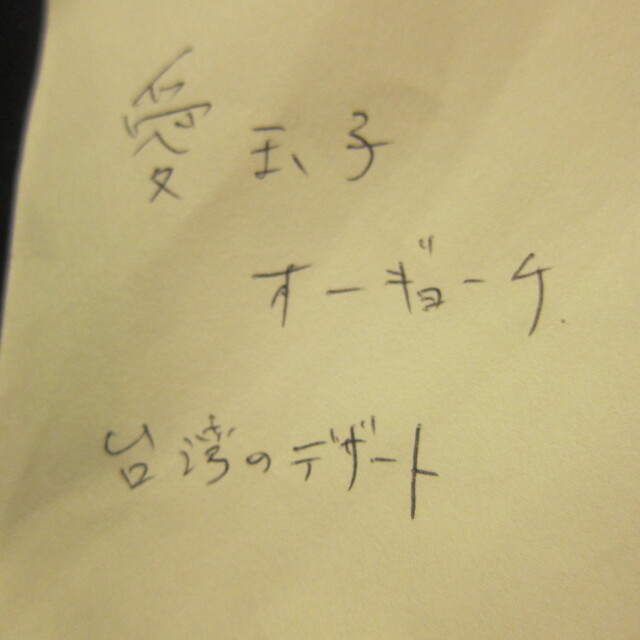 愛玉子
オーギョーチ.
台湾のデザート